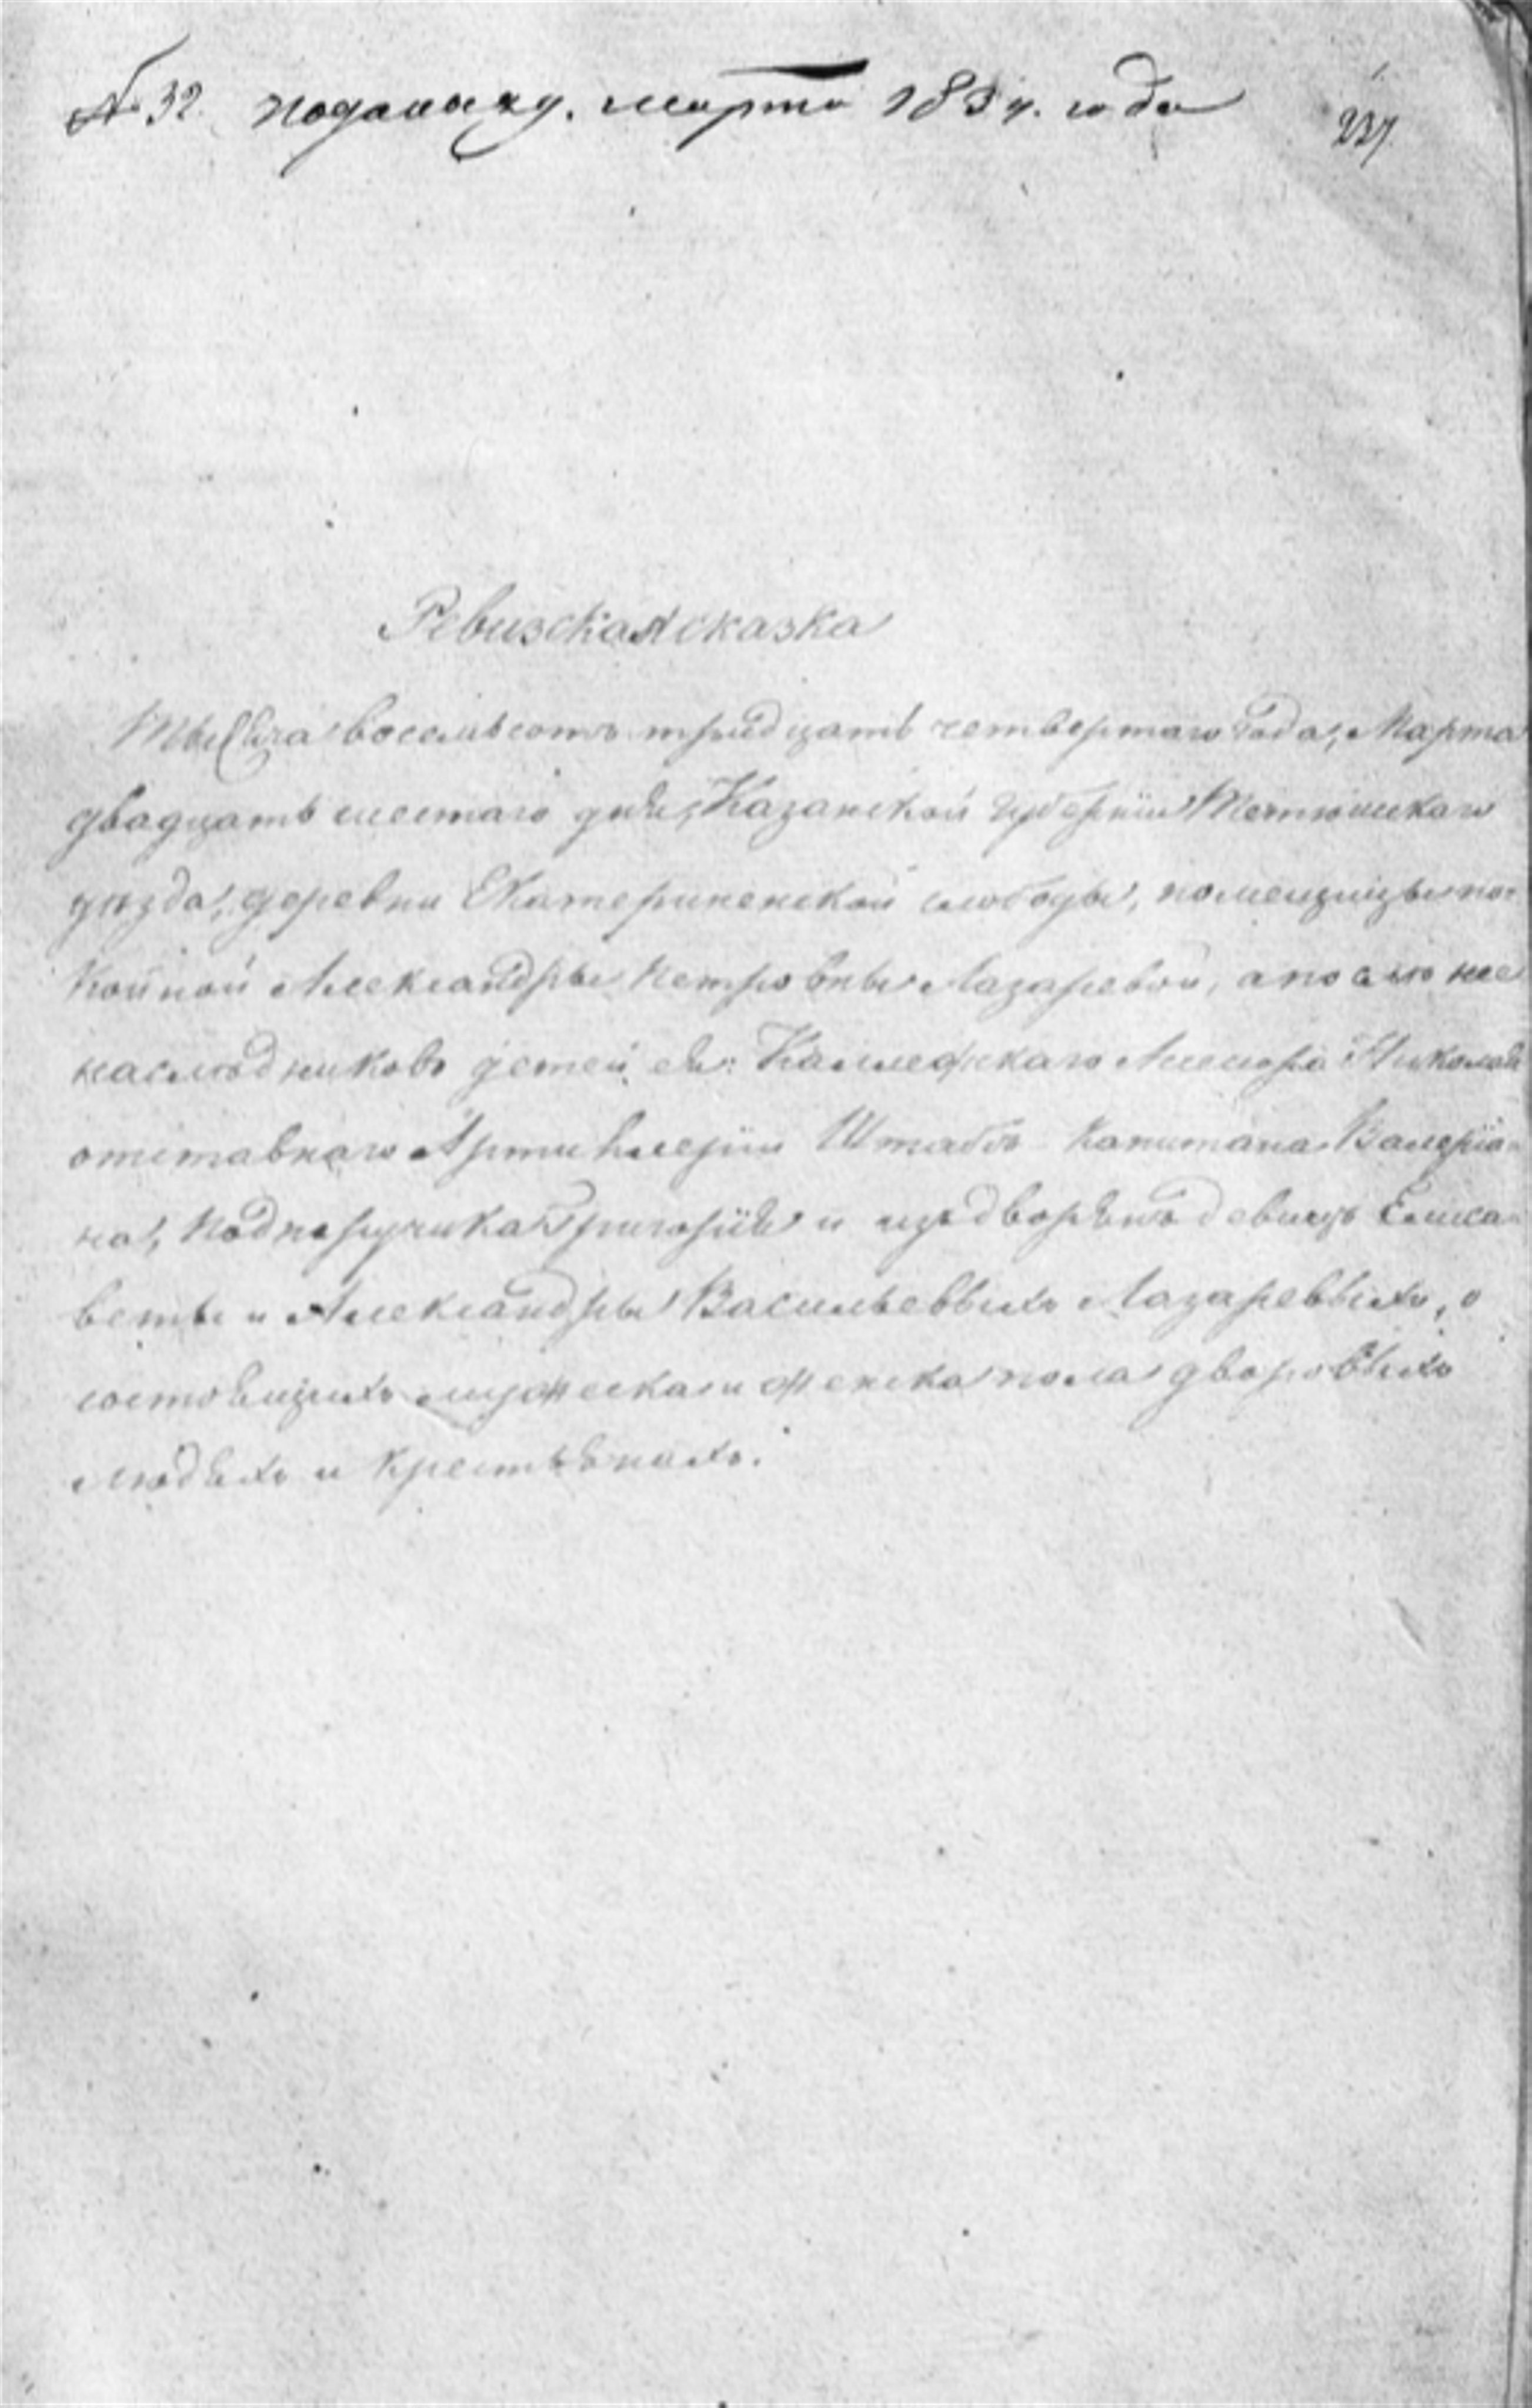 № 32. подана 29. марта 1834. года
237
Ревизская сказка
Тысяча восемьсотъ тридцать четвертаго года, Марта
двадцать шестаго дня, Казанской Губерніи Тетюшскаго
уѣзда, деревни Екатерининской слободы, помещицы по-
койной Александры Петровны Лазаревой, а по ней
наслѣдниковъ детей ея: Коллежскаго Асессора Николая
отставнаго Артиллеріи Штабсъ Капитана Валеріа-
на, Подпоручика Григорія и изъ дворянъ девицъ Елиса-
веты и Александры Васильевыхъ Лазаревыхъ, о
состоящихъ мужеска и женска пола дворовыхъ
людяхъ и крестьянахъ.